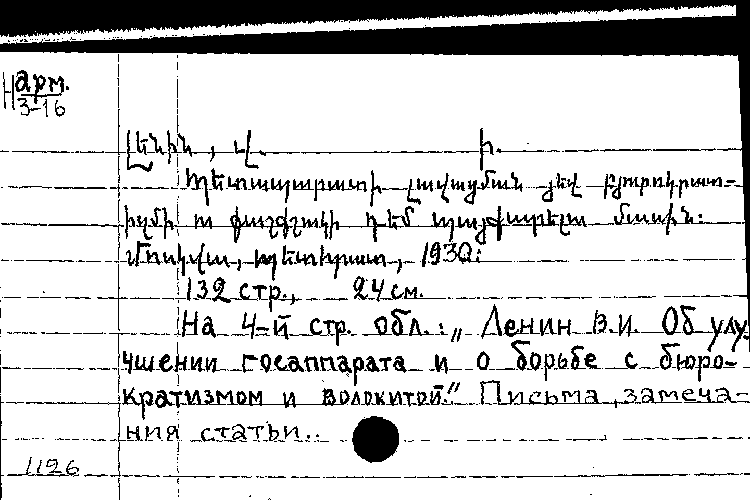 Н арм.
3-16
Լենին, Վ. Ի.
Պետապարատի լավացման յեվ բյուրոկրատ-
իզմի ու քաշքշուկի դեմ պայքարելու մասին:
Մոսկվա, Պետհրատ, 1930:
132 стр., 24 см.
На 4-й стр. обл.: „Ленин В.И. Об улу-
чшении госаппарата и о борьбе с бюро-
кратизмом и волокитой." Письма, замеча-
ния статьи..
1126